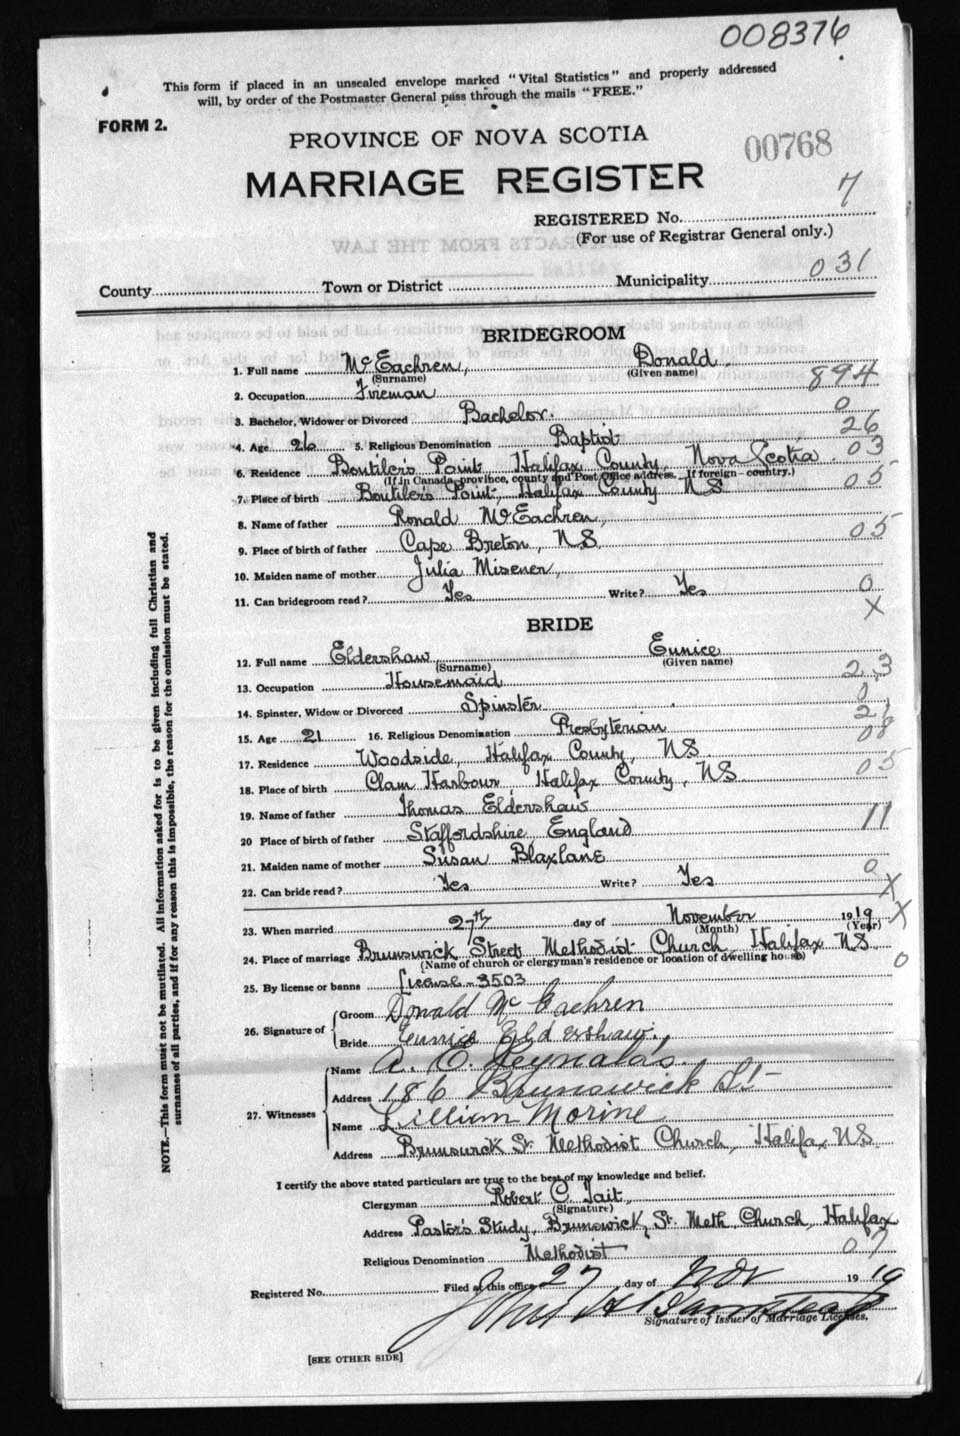 008376
This form if placed in an unsealed envelope marked "Vital Statistics" and properly addressed
will, by order of the Postmaster General pass through the mails "FREE."
FORM 2.
PROVINCE OF NOVA SCOTIA
00768
MARRIAGE REGISTER
7
REGISTERED No.
(For use of Registrar General only.)
County Town or District Municipality 031
BRIDEGROOM
1. Full name McEachren, Donald,
(Surname) (Given name)
894
2. Occupation Fireman
3. Bachelor, Widower or Divorced Bachelor. 0
4. Age 26 5. Religious Denomination Baptist 26
6. Residence Boutilers Point Halifax County, Nova Scotia. 03
(If in Canada, province, county and Post Office address. If foreign - country.)
7. Place of birth Boutilers Point, Halifax County NS 05
8. Name of father Ronald McEachren,
9. Place of birth of father Cape Breton, NS 05
10. Maiden name of mother Julia Misener,
11. Can bridegroom read? Yes Write? Yes 0
X
BRIDE
12. Full name Eldershaw Eunice
(Surname) (Given name)
13. Occupation Housemaid 23
14. Spinster, Widow or Divorced Spinster 0
15. Age 21 16. Religious Denomination Presbyterian 21
17. Residence Woodside, Halifax County, NS 08
18. Place of birth Clam Harbour, Halifax County, NS 05
19. Name of father Thomas Eldershaw
20 Place of birth of father Staffordshire England 11
21. Maiden name of mother Susan Blaxlane
22. Can bride read? Yes Write? Yes 0
X
23. When married 27th day of November 1919 X
(Month) (Year)
24. Place of marriage Brunswick Street Methodist Church, Halifax NS
(Name of church or clergyman's residence or location of dwelling house) 0
25. By license or banns License - 3503
26. Signature of Groom Donald McEachren
Bride Eunice Eldershaw.
27. Witnesses Name A. E. Reynolds
Address 186 Brunswick St
Name Lillian Morine
Address Brunswick St. Methodist Church, Halifax NS
I certify the above stated particulars are true to the best of my knowledge and belief.
Clergyman Robert C. Tait,
(Signature)
Address Pastor's Study, Brunswick St Meth Church, Halifax
Religious Denomination Methodist 07
Registered No. Filed at this office 27 day of Nov 1919
John
Signature of Issuer of Marriage Licenses.
[SEE OTHER SIDE]
NOTE.—This form must not be mutilated. All information asked for is to be given including full Christian and
surnames of all parties, and if for any reason this is impossible, the reason for the omission must be stated.